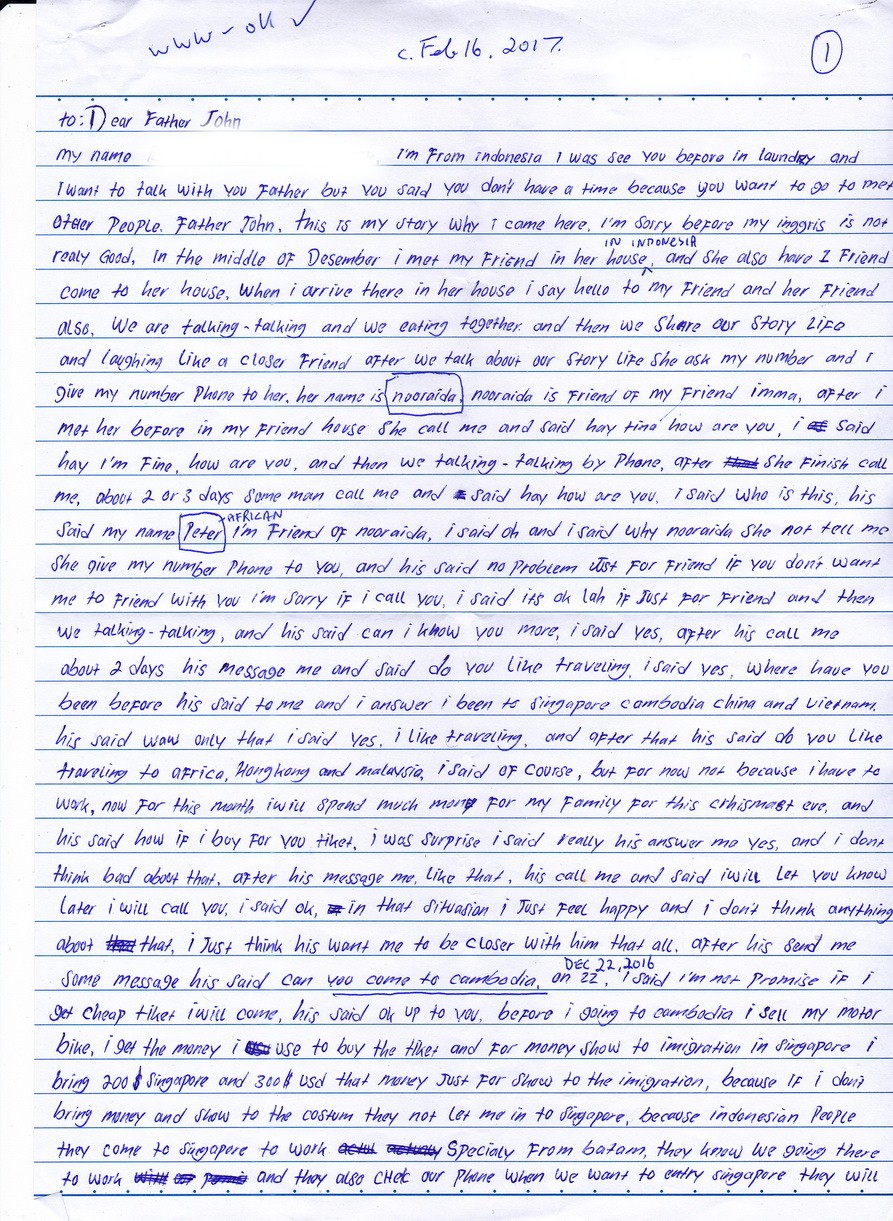 www - ok ✓
c. Feb 16, 2017.
1
to: Dear Father John
my name I'm From indonesia I was see you before in laundry and
I want to talk with you Father but you said you don't have a time because you want to go to met
other People. Father John, this is my story why I came here, I'm sorry before my inggris is not
realy Good, in the middle of Desember i met my Friend in her house IN INDONESIA, and she also have 1 Friend
come to her house, when i arrive there in her house i say hello to my Friend and her Friend
also, we are talking-talking and we eating together. and then we share our story life
and laughing like a closer Friend after we talk about our story life she ask my number and i
give my number Phone to her, her name is nooraida, nooraida is Friend of my Friend imma, after i
met her before in my Friend house she call me and said hay tina how are you, i said
hay i'm Fine, how are you, and then we talking-talking by Phone, after she Finish call
me, about 2 or 3 days some man call me and said hay how are you. i said who is this, his
said my name Peter AFRICAN i'm Friend of nooraida, i said oh and i said why nooraida she not tell me
she give my number Phone to you, and his said no Problem Just For Friend if you don't want
me to Friend with you i'm sorry if i call you, i said its ok lah if Just For Friend and then
we talking-talking, and his said can i know you more, i said yes, after his call me
about 2 days his message me and said do you like traveling, i said yes, where have you
been before his said to me and i answer i been to singapore cambodia china and vietnam.
his said waw only that i said yes, i like traveling, and after that his said do you like
traveling to africa, Hongkong and malaysia, i said OF course, but For now not because i have to
work, now For this month i will spend much mony For my Family For this crhismast eve, and
his said how if i buy For you tiket, i was surprise i said really his answer me yes, and i dont
think bad about that, after his message me, like that, his call me and said i will let you know
later i will call you, i said ok, in that situasion i Just Feel happy and i don't think anything
about that, i Just think his want me to be closer with him that all. after his send me
some message his said can you come to cambodia, on 22, DEC 22, 2016 i said i'm not Promise if i
get cheap tiket i will come, his said ok up to you, before i going to cambodia i sell my motor
bike, i get the money i use to buy the tiket and For money show to imigration in singapore i
bring 200 $ singapore and 300 $ usd that money Just For show to the imigration, because if i don't
bring money and show to the costum they not let me in to singapore, because indonesian People
they come to singapore to work specialy From batam, they know we going there
to work and they also chek our Phone when we want to entry singapore they will